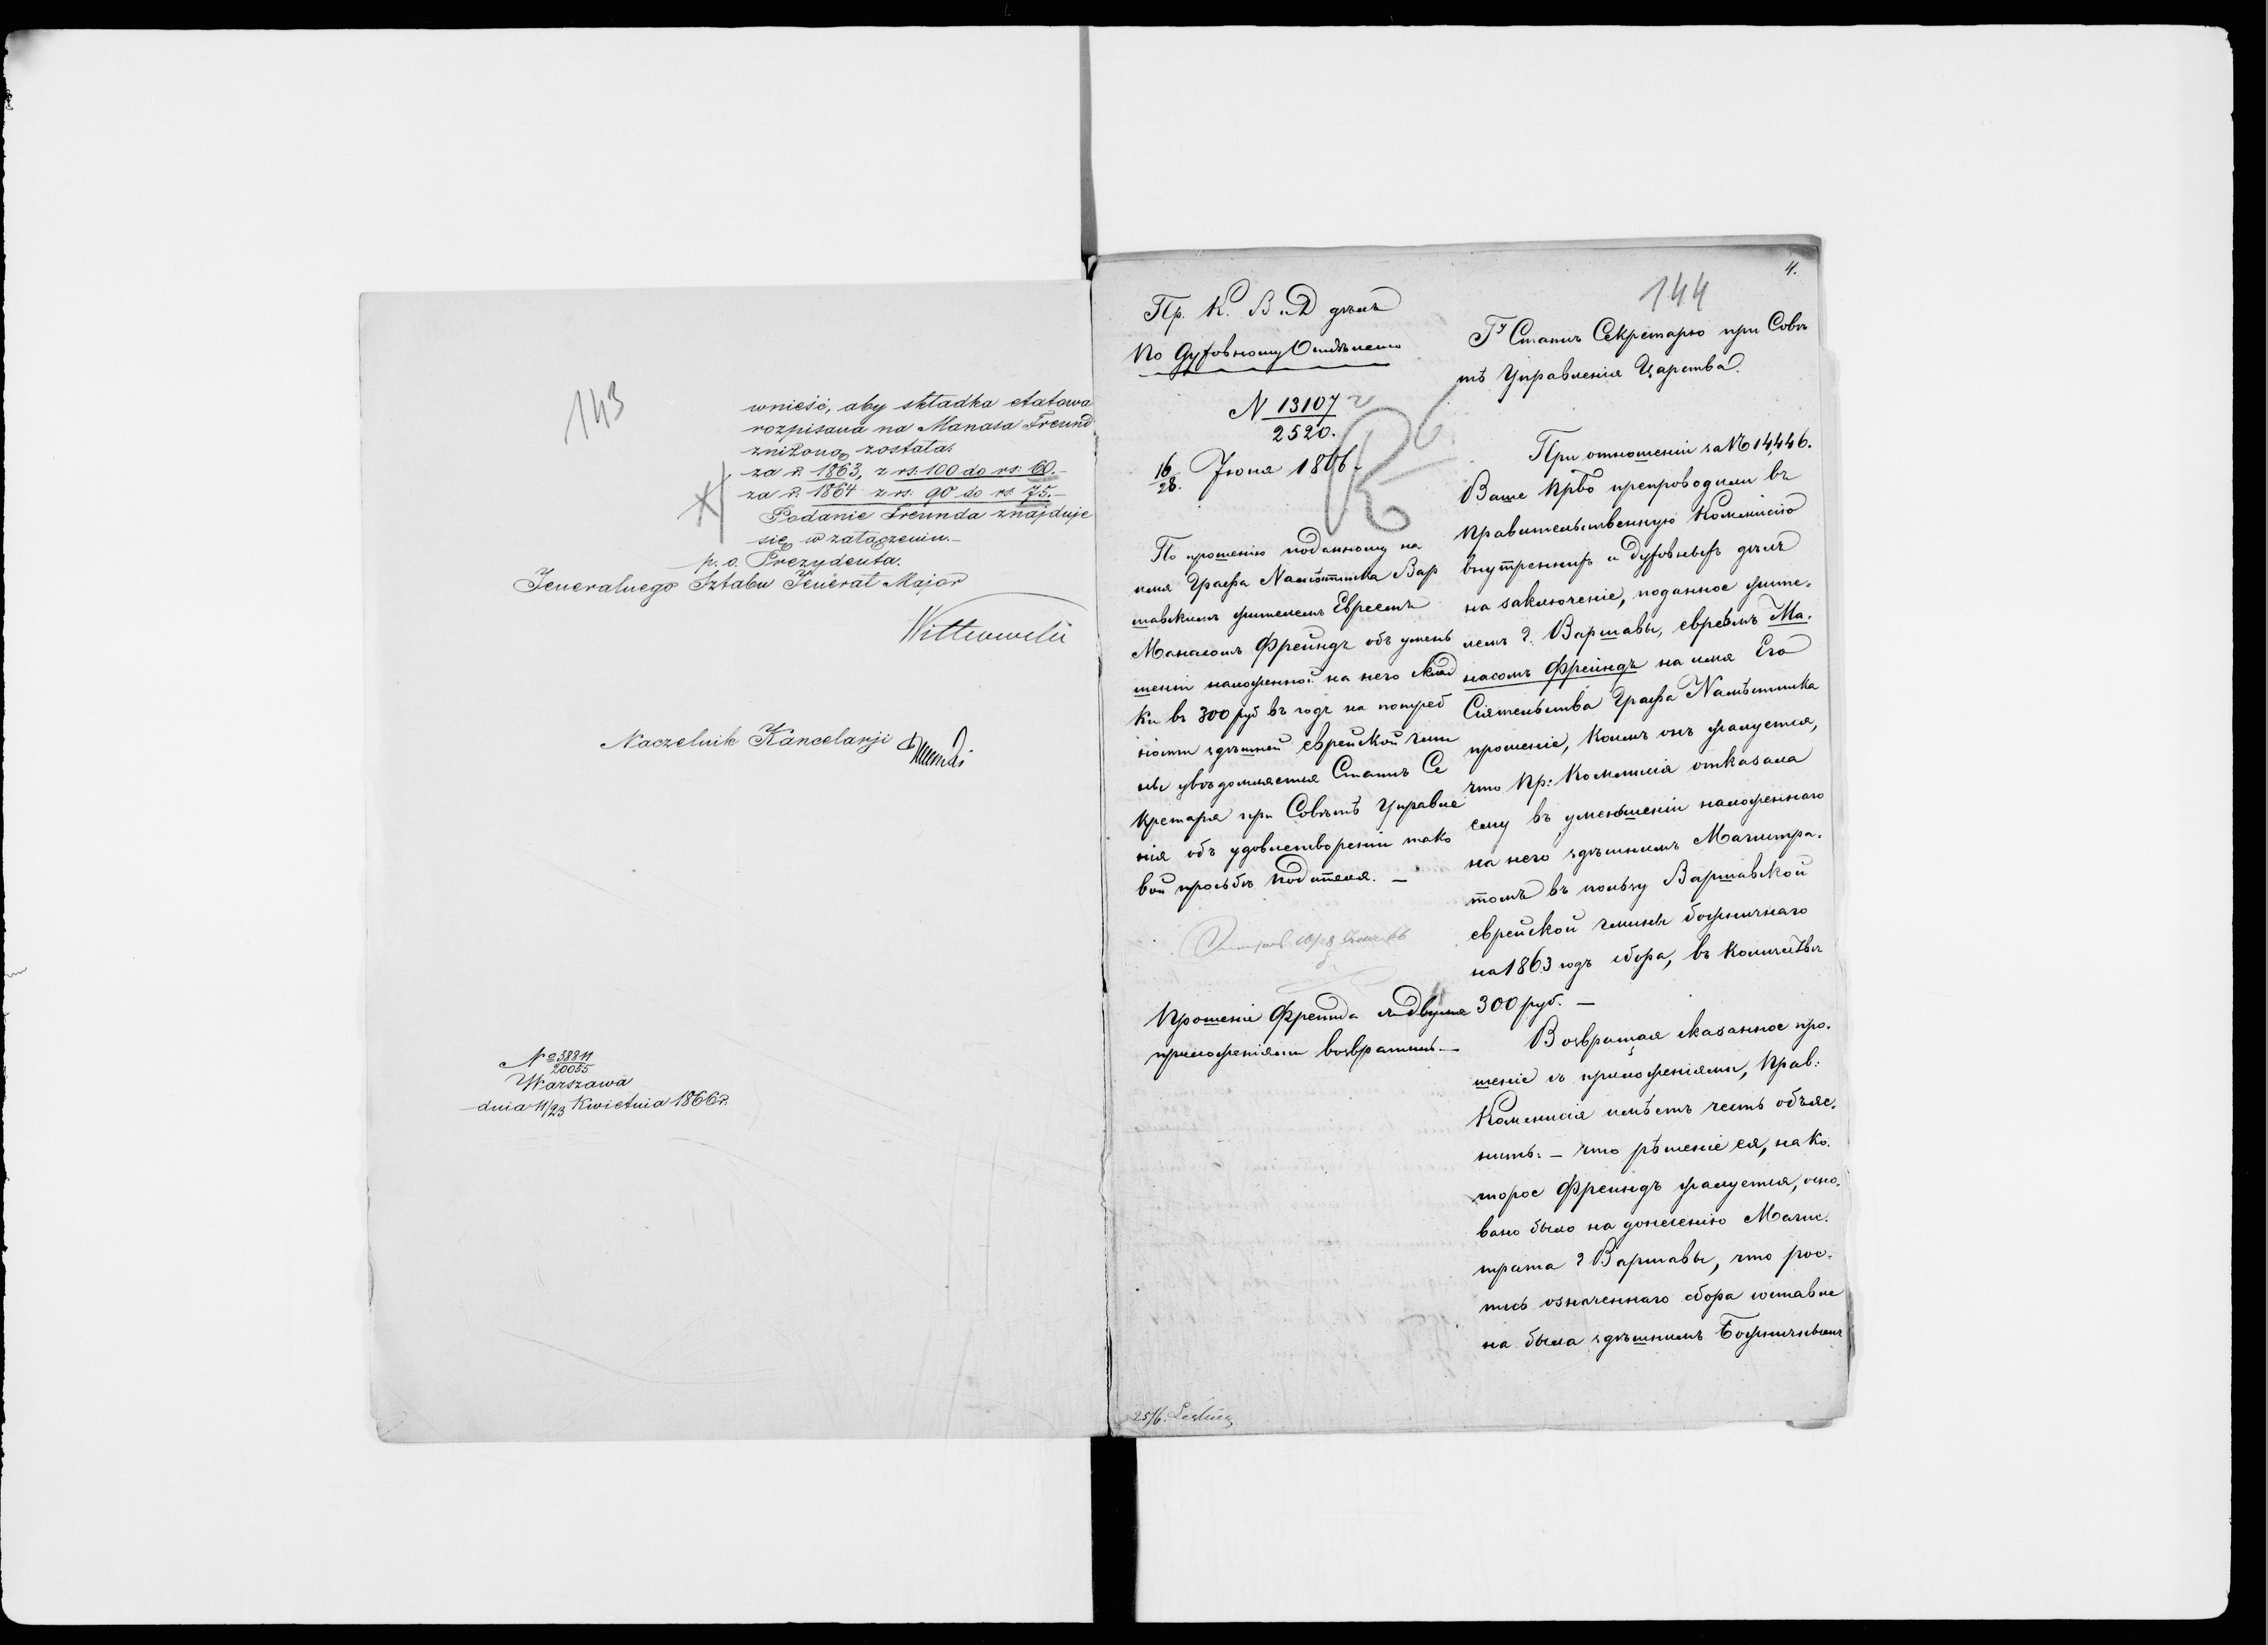 143
wnieść, aby składka etatowa
rozpisana na Manasa Freund
zniżoną została:
za r. 1863, z rs: 100 do rs: 60.-
za r. 1864 z rs. 90 do rs. 75.-
Podanie Freunda znajduje
się w załączeniu.-
p. o. Prezydenta.
Jeneralnego Sztabu Jenerał Major
Witkowski
Naczelnik Kancelarji
№ 38811
20055
Warszawa
dnia 11/23 Kwietnia 1866 r.
4.
144
Пр. К. В. и Д дѣлъ
По Духовному Отдѣленію
N 13107
2520.
16/28. Іюня 1866.
По прошенію поданному на
имя Графа Намѣстника Вар
шавскимъ жителемъ Евреемъ
Манасомъ Фрейндъ объ умень
шеніи наложенной на него склад
ки въ 300 руб въ годъ на потреб
ности здѣшней еврейской гми
ны увѣдомляется Статсъ Се
кретаря при Совѣтѣ Управле
нія объ удовлетвореніи тако
вой просьбы подателя. —
Прошеніе Фрейнда съ двумя
приложеніями возвратить. —
25/6.
Гу Статсъ Секретарю при Совѣ
тѣ Управленія Царства.
При отношеніи за № 14,446.
Ваше Прво препроводили въ
Правительственную Коммисію
внутреннихъ и Духовныхъ дѣлъ
на заключеніе, поданное жите-
лемъ г. Варшавы, евреемъ Ма-
насомъ Фрейндъ на имя Его
Сіятельства Графа Намѣстника
прошеніе, коимъ онъ жалуется,
что Пр: Коммисія отказала
ему въ уменьшеніи наложеннаго
на него здѣшнимъ Магистра-
томъ въ пользу Варшавской
еврейской гмины божничнаго
на 1863 годъ сбора, въ количествѣ
300 руб. —
Возвращая сказанное про-
шеніе съ приложеніями, Прав:
Коммисія имѣетъ честь объяс-
нить: — что рѣшеніе ея, на ко-
торое Фрейндъ жалуется, осно-
вано было на донесенію Магис-
трата г Варшавы, что рос-
пись означеннаго сбора составле
на была здѣшнимъ Божничнымъ